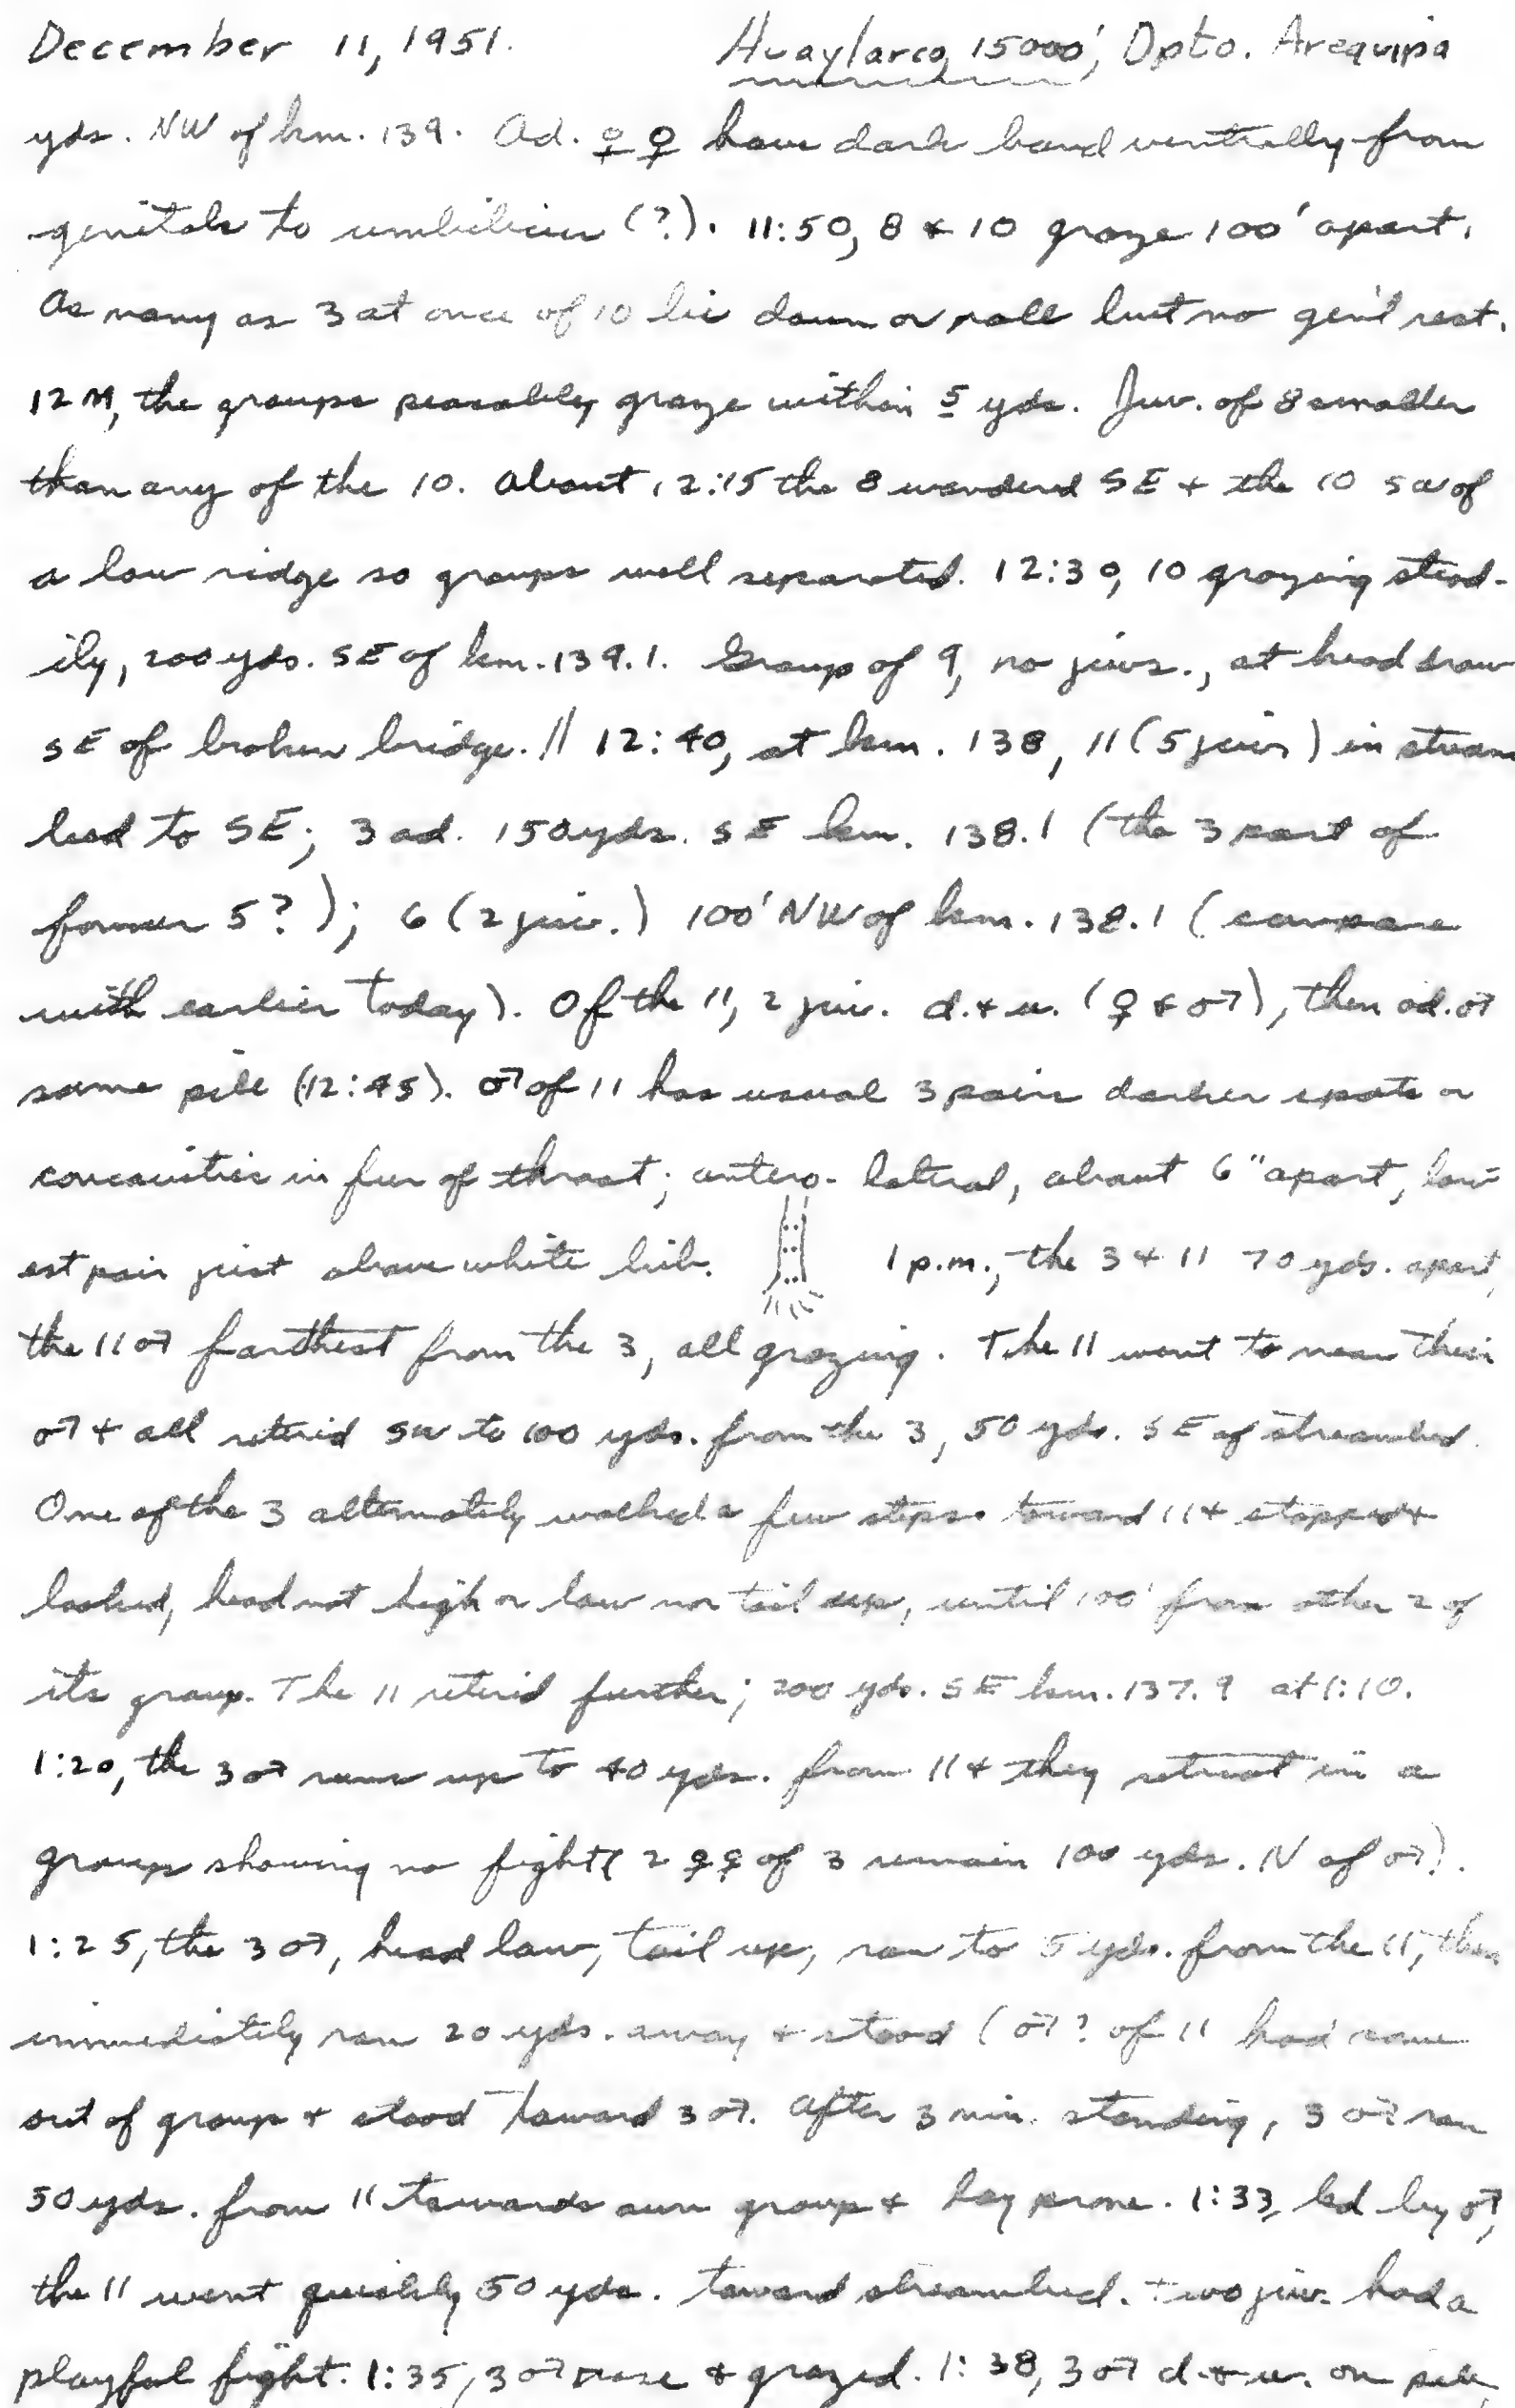 December 11, 1951. Huaylarco, 15000', Dpto. Arequipa
yds. NW of km. 139. Ad. ♀♀ have dark band ventrally from
genitals to umbilicus (?). 11:50, 8 & 10 graze 100' apart.
As many as 3 at once of 10 lie down or roll but no gen'l rest.
12 M, the groups peaceably graze within 5 yds. Juv. of 8 smaller
than any of the 10. About 12:15 the 8 wandered SE & the 10 SW of
a low ridge so groups well separated. 12:30, 10 grazing stead-
ily, 200 yds. SE of km. 139.1. Group of 9, no juvs., at head draw
SE of broken bridge. // 12:40, at km. 138, 11 (5 juvs) in stream
bed to SE; 3 ad. 150 yds. SE km. 138.1 (the 3 part of
former 5?); 6 (2 juv.) 100' NW of km. 138.1 (compare
with earlier today). Of the 11, 2 juv. d. & u. (♀ & ♂), then ad. ♂
same pile (12:45). ♂ of 11 has usual 3 pairs darker spots or
concavities in fur of throat; antero-lateral, about 6" apart, low-
est pair just above white bib. 1 p.m., the 3 & 11 70 yds. apart,
the 11 ♂ farthest from the 3, all grazing. The 11 went to near their
♂ & all retired SW to 100 yds. from the 3, 50 yds. SE of streambed.
One of the 3 alternately walked a few steps toward 11 & stopped &
looked, head not high or low nor tail up, until 100' from other 2 of
its group. The 11 retired further; 200 yds. SE km. 137.9 at 1:10.
1:20, the 3 ♂ runs up to 40 yds. from 11 & they retreat in a
group showing no fight (2 ♀♀ of 3 remain 100 yds. N of ♂).
1:25, the 3 ♂, head low, tail up, ran to 5 yds. from the 11, then
immediately ran 20 yds. away & stood (♂? of 11 had come
out of group & stood toward 3 ♂. After 3 min. standing, 3 ♂ ran
50 yds. from 11 towards own group & lay prone. 1:33, led by ♂,
the 11 went quickly 50 yds. toward streambed. Two juv. had a
playful fight. 1:35, 3 ♂ rose & grazed. 1:38, 3 ♂ d. & u. on pile,